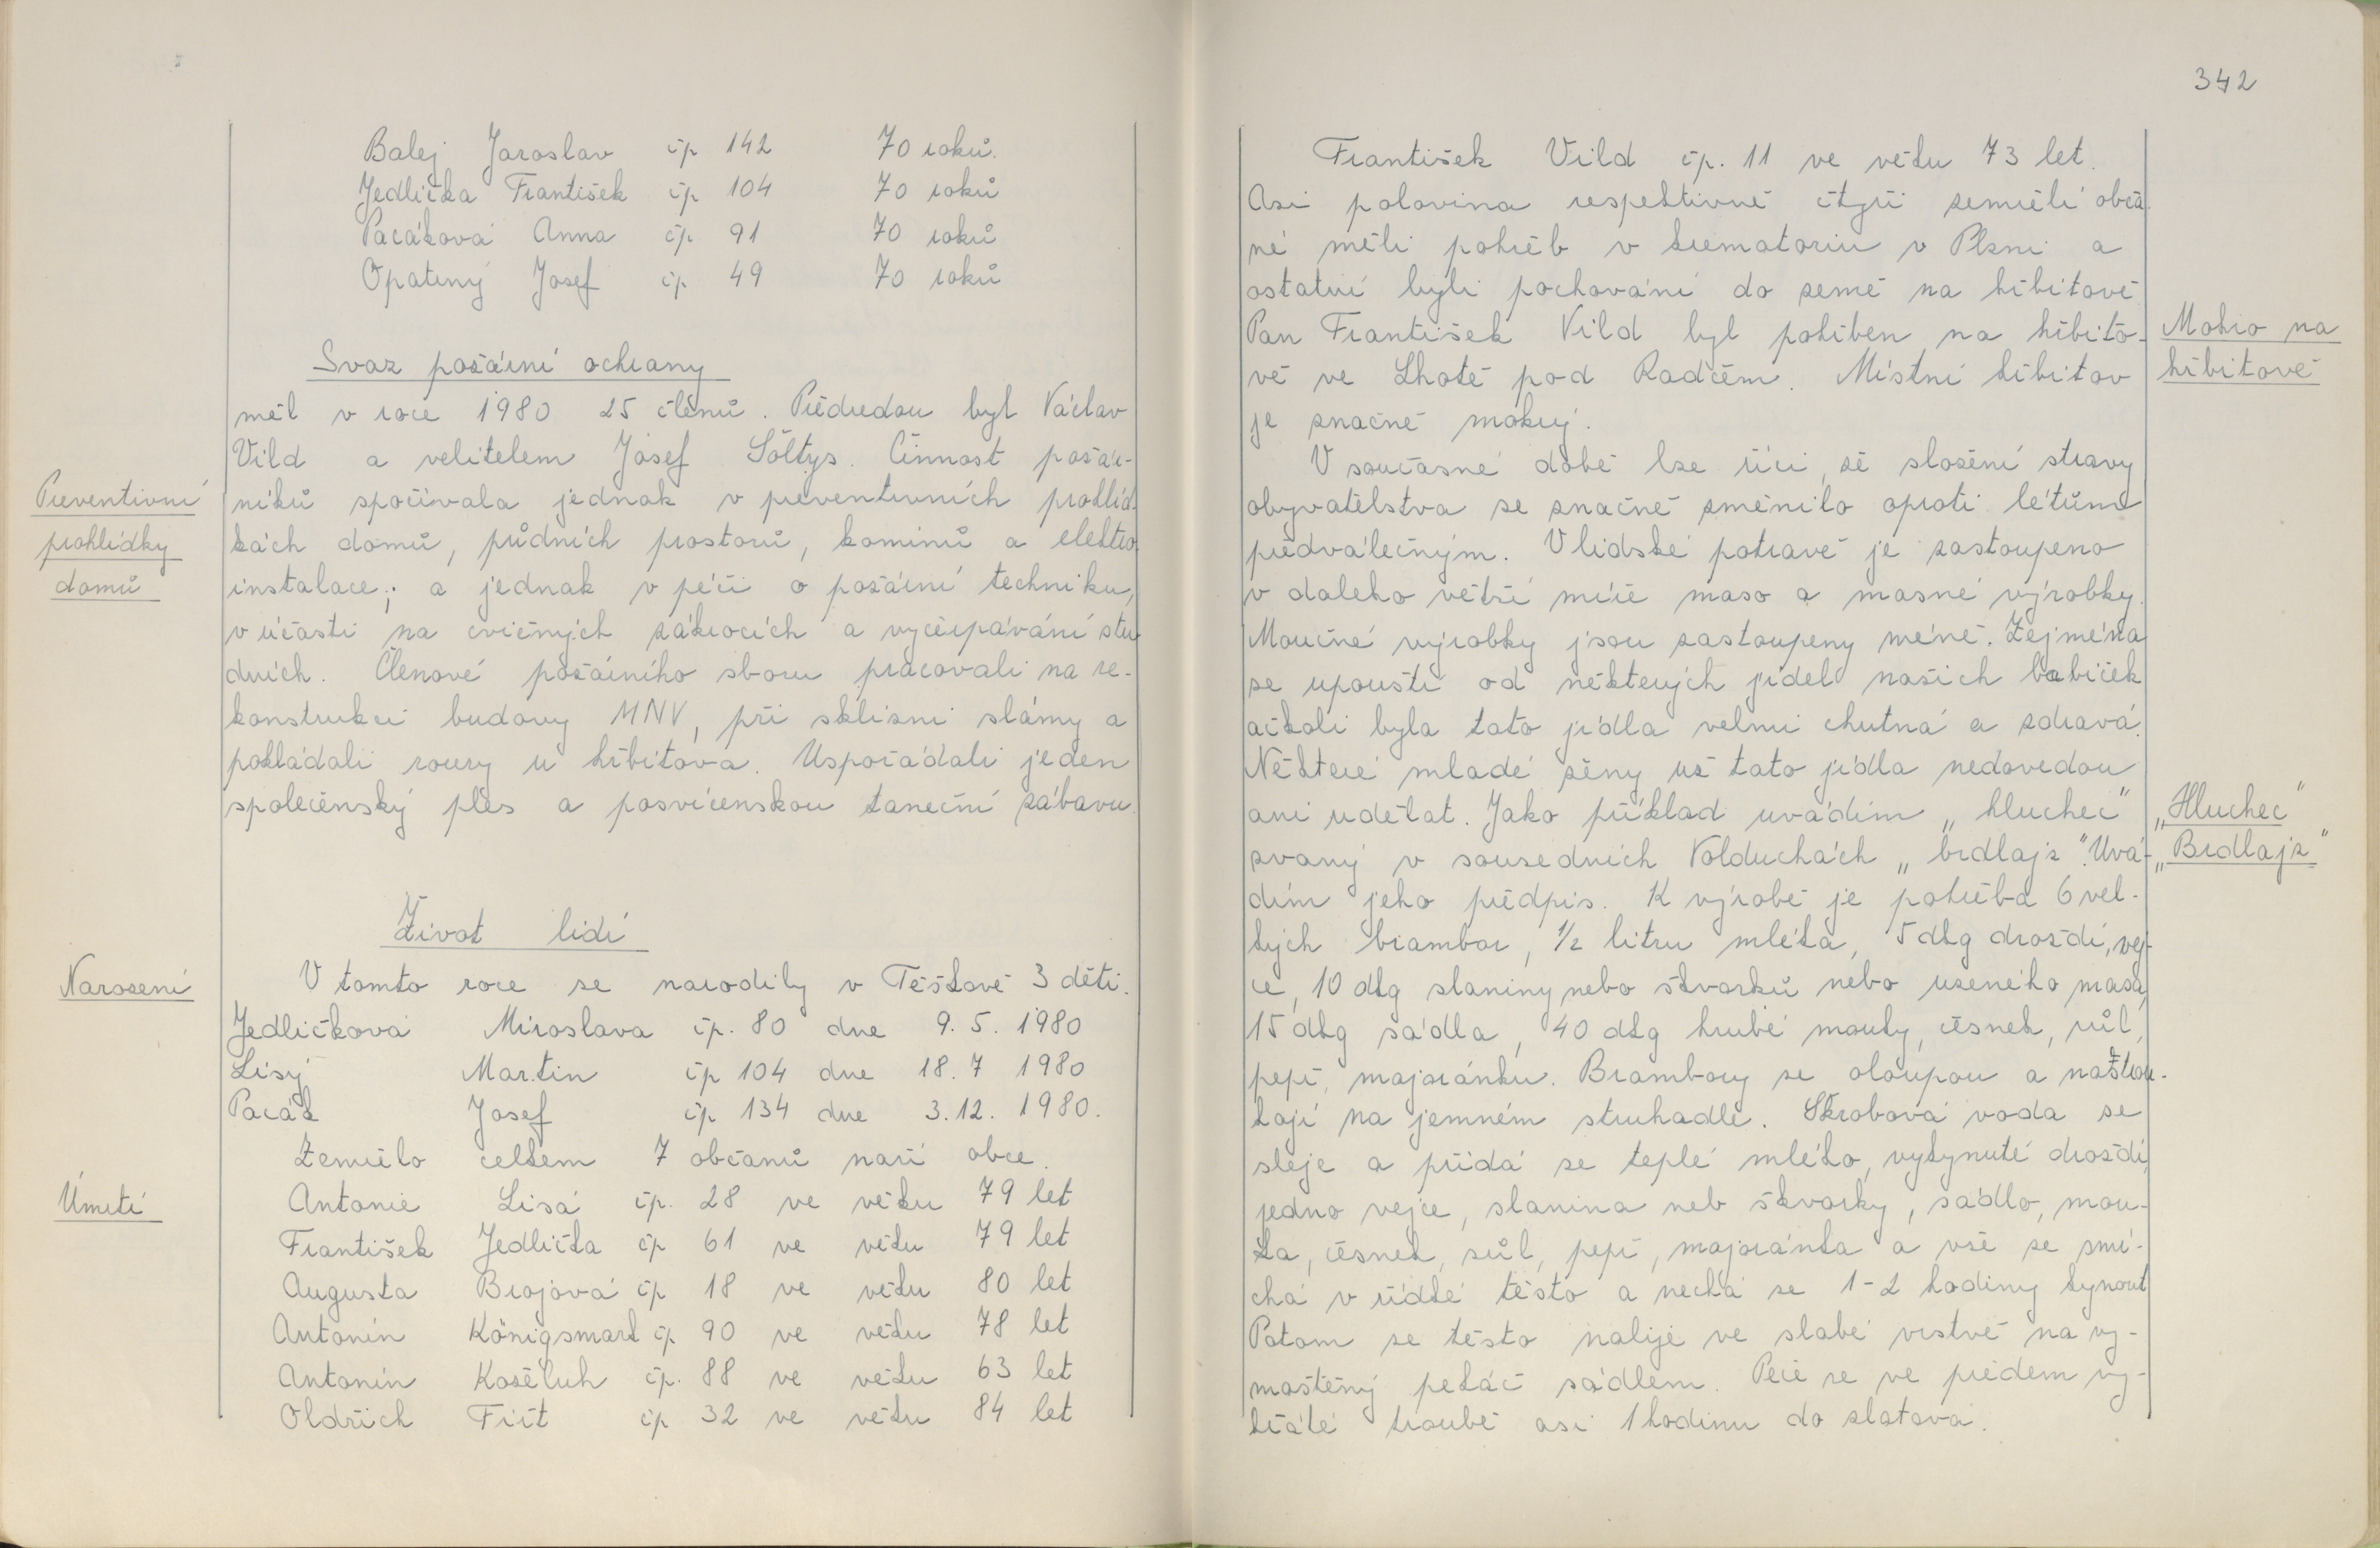 Balej Jaroslav čp 142 70 roků.
Jedlička František čp 104 70 roků
Pacáková Anna čp. 91 70 roků
Opatrný Josef čp. 49 70 roků
Svaz požární ochrany
měl v roce 1980 25 členů. Předsedou byl Václav
Vild a velitelem Josef Šöltys. Činnost požár-
Preventivní
prohlídky
domů
níků spočívala jednak v preventivních prohlíd-
kách domů, půdních prostorů, komínů a elektro
instalace; a jednak v péči o požární techniku,
v účasti na cvičných zákrocích a vyčerpávání stu
dních. Členové požárního sboru pracovali na re-
konstrukci budovy MNV, při sklizni slámy a
pokládali roury u hřbitova. Uspořádali jeden
společenský ples a posvícenskou taneční zábavu.
Život lidí
Narození
V tomto roce se narodily v Těškově 3 děti.
Jedličková Miroslava čp. 80 dne 9. 5. 1980
Lisý Martin čp 104 dne 18. 7 1980
Pacák Josef čp 134 dne 3. 12. 1980.
Zemřelo celkem 7 občanů naší obce.
Úmrtí
Antonie Lisá čp. 28 ve věku 79 let
František Jedlička čp 61 ve věku 79 let
Augusta Brojová čp 18 ve věku 80 let
Antonín Königsmark čp. 90 ve věku 78 let
Antonín Koželuh čp. 88 ve věku 63 let
Oldřich Fiřt čp 32 ve věku 84 let
342
František Vild čp. 11 ve věku 73 let.
Asi polovina respektivně čtyři zemřelí obča-
né měli pohřeb v krematoriu v Plzni a
ostatní byli pochováni do země na hřbitově
Pan František Vild byl pohřben na hřbito-
vě ve Lhotě pod Radčem. Místní hřbitov
je značně mokrý.
Mokro na
hřbitově
V současné době lze říci, že složení stravy
obyvatelstva se značně změnilo oproti létům
předválečným. V lidské potravě je zastoupeno
v daleko větší míře maso a masné výrobky.
Moučné výrobky jsou zastoupeny méně. Zejména
se upouští od některých jídel našich babiček
ačkoli byla tato jídla velmi chutná a zdravá.
Některé mladé ženy už tato jídla nedovedou
ani udělat. Jako příklad uvádím „hluchec"
zvaný v sousedních Volduchách „brdlajz". Uvá-
„Hluchec"
„Brdlajz"
dím jeho předpis. K výrobě je potřeba 6 vel-
kých brambor, 1/2 litru mléka, 5 dkg droždí, vej-
ce, 10 dkg slaniny nebo škvarků nebo uzeného masa,
15 dkg sádla, 40 dkg hrubé mouky, česnek, sůl,
pepř, majoránku. Brambory se oloupou a nastrou-
kají na jemném struhadle. Škrobová voda se
sleje a přidá se teplé mléko, vykynuté droždí,
jedno vejce, slanina neb škvarky, sádlo, mou-
ka, česnek, sůl, pepř, majoránka a vše se smí-
chá v řídké těsto a nechá se 1-2 hodiny kynout
Potom se těsto nalije ve slabé vrstvě na vy-
maštěný pekáč sádlem. Peče se ve předem vy-
hřáté troubě asi 1 hodinu do zlatova.